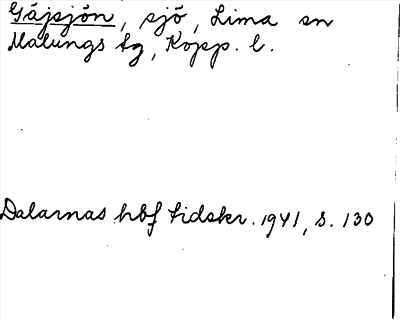 Gåjsjön, sjö, Lima sn
Malungs tg, Kopp. l.
Dalarnas hbf tidskr. 1941, s. 130